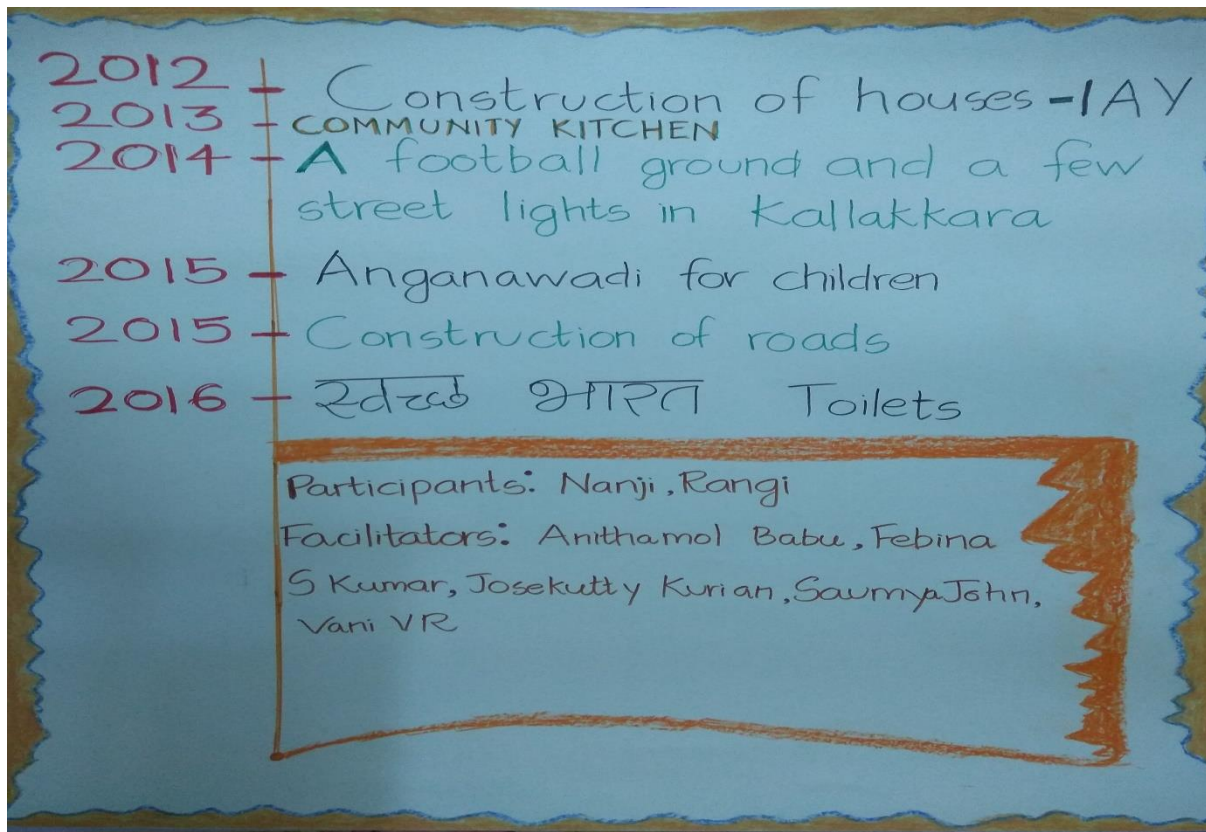 2012 - Construction of houses - IAY
2013 - COMMUNITY KITCHEN
2014 - A football ground and a few
street lights in Kallakkara
2015 - Anganawadi for children
2015 - Construction of roads
2016 - स्वच्छ भारत Toilets
Participants: Nanji, Rangi
Facilitators: Anithamol Babu, Febina
S Kumar, Josekutty Kurian, Saumya John,
Vani VR